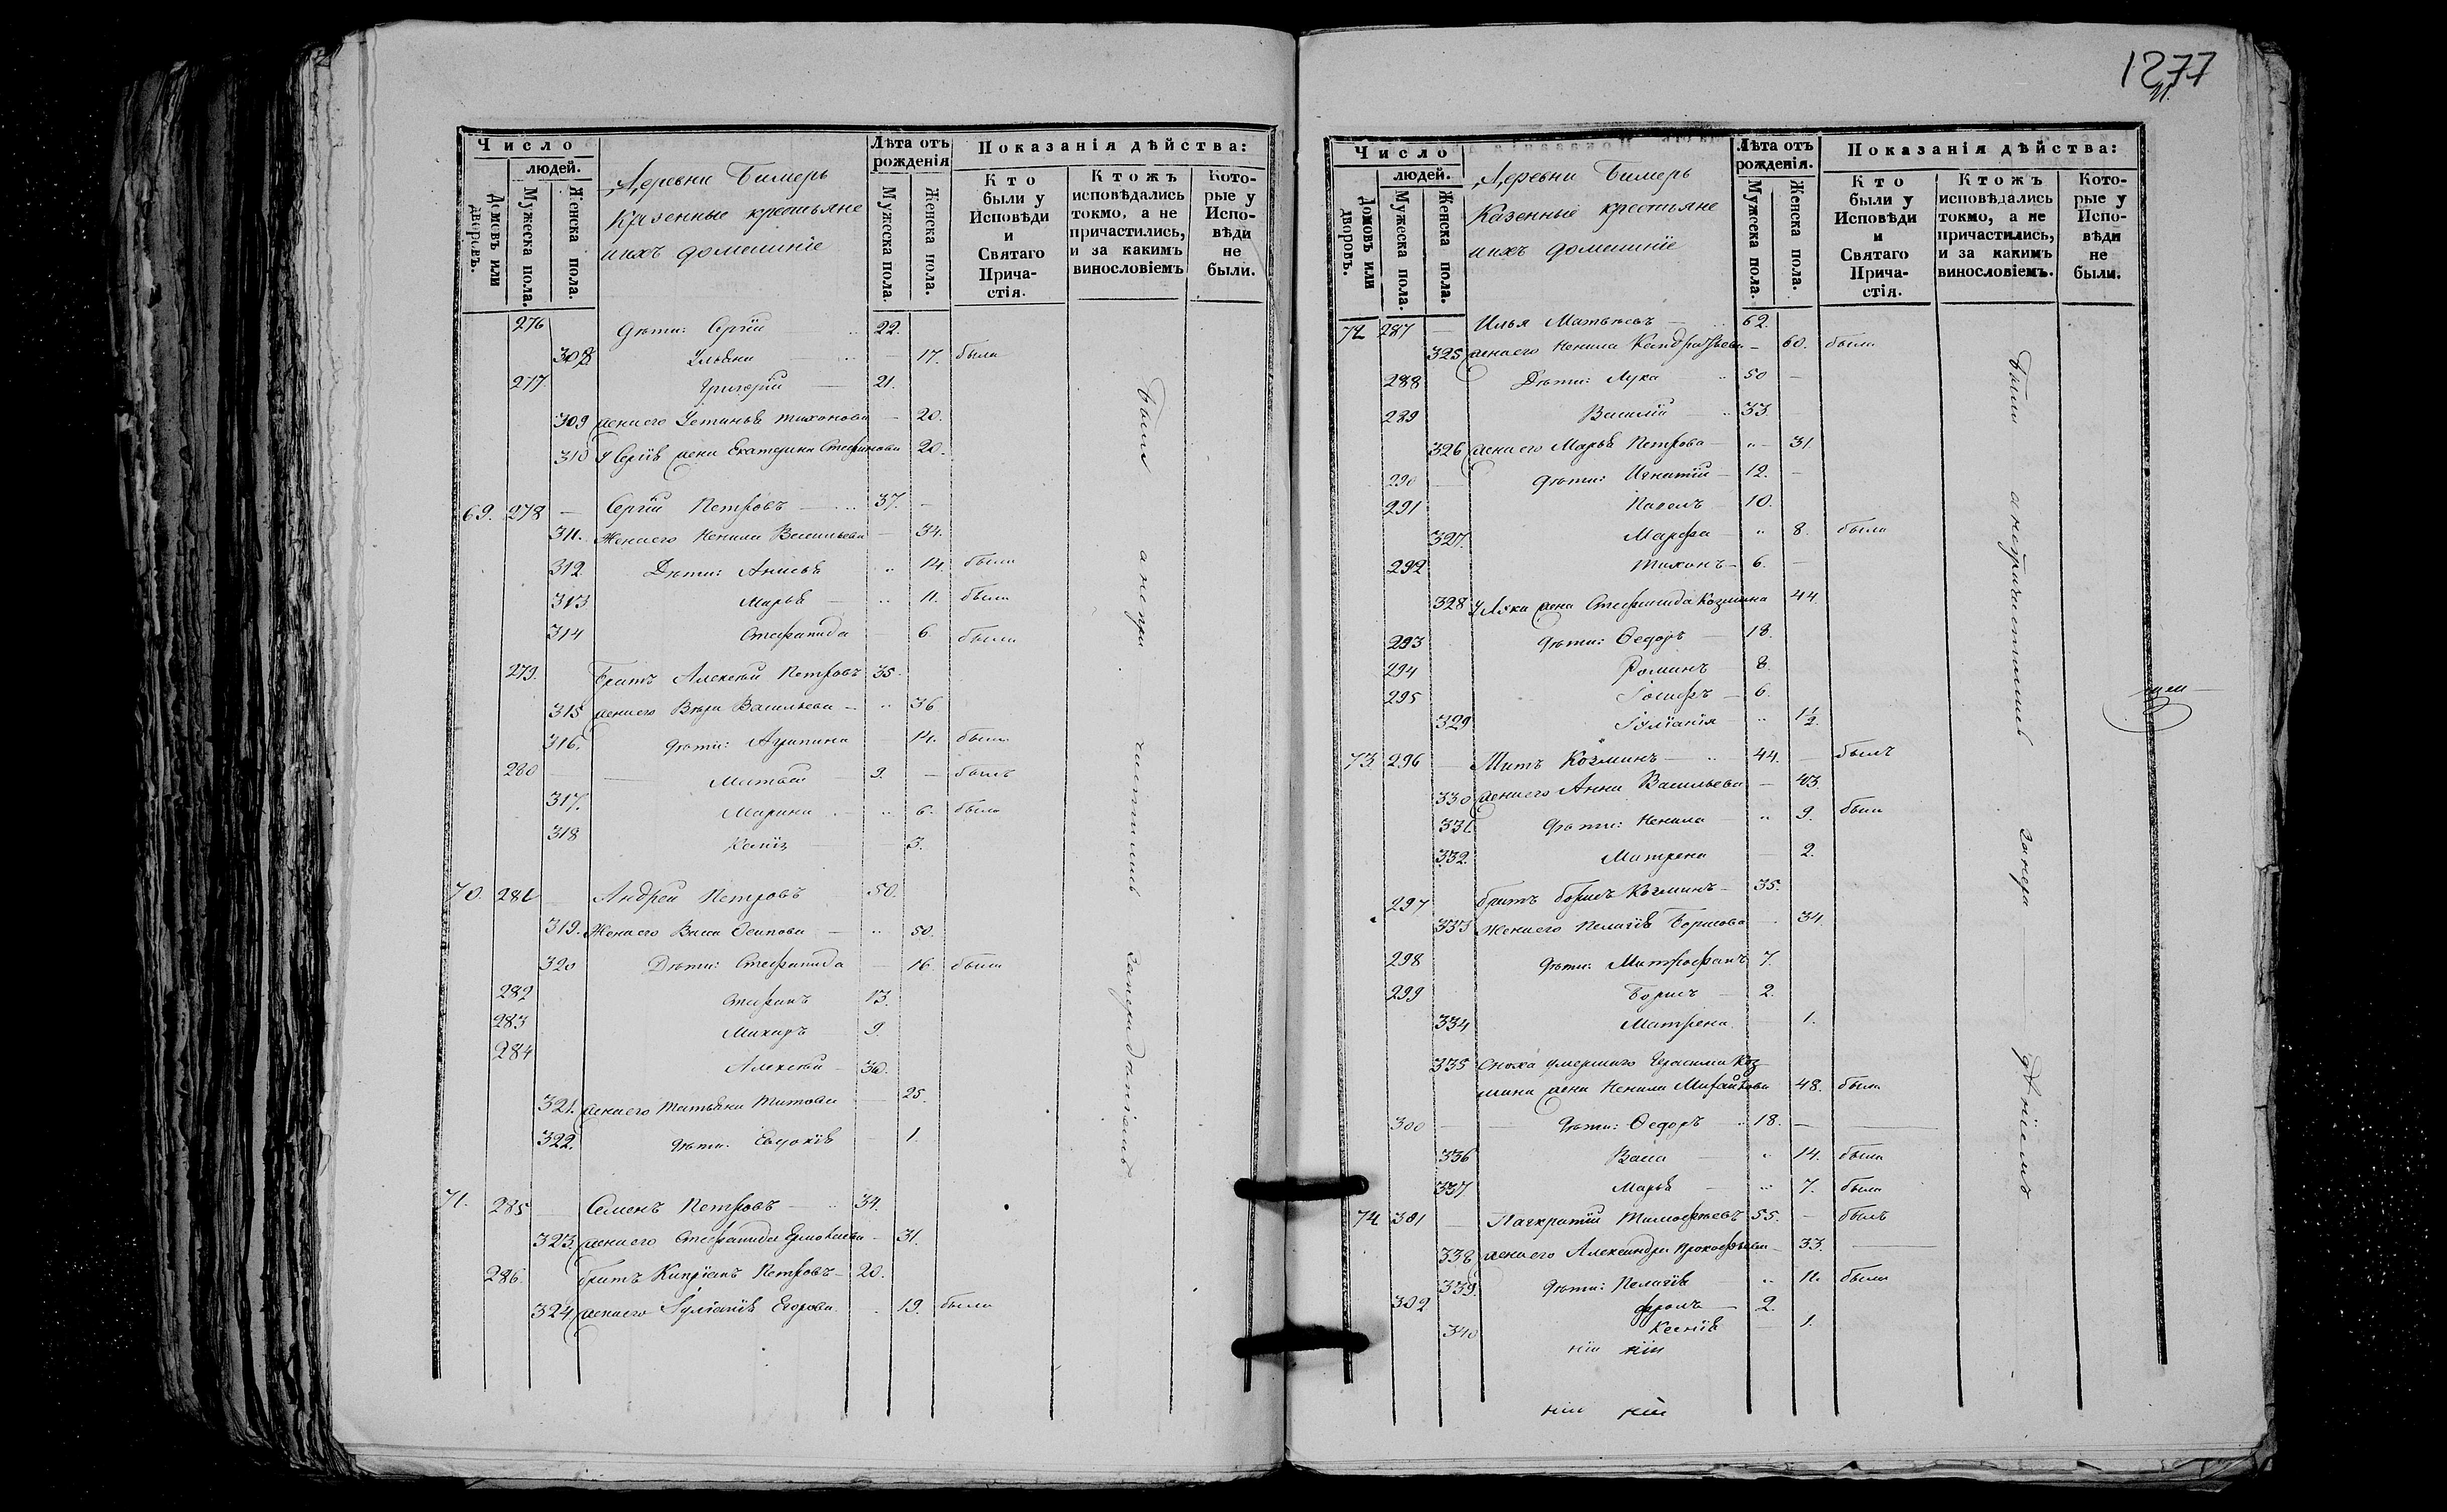 Число
людей.
Домовъ или дворовъ.
Мужеска пола.
Женска пола.
Деревни Бимерь
Казенные крестьяне
ихъ домашніе
Лѣта отъ рожденія
Мужеска пола.
Женска пола.
Показанія дѣйства:
Кто были у Исповѣди и Святаго Причастія.
Ктожъ исповѣдались токмо, а не причастились, и за какимъ винословіемъ
Которые у Исповѣди не были.
276 Дѣти: Сергій 22.
308 Ульяна 17. была
277 Григорій 21.
309 жена его Устинья Тихонова 20.
310 У Сергія жена Екатерина Стефанова 20.
69. 278 Сергій Петровъ 37.
311. Жена его Ненила Васильева 34.
312 Дѣти: Анисья 14. была
313 Марья 11. была
314 Стефанида 6. была
279. Братъ Алексѣй Петровъ 35.
315 жена его Вѣра Васильева 36
316. Дѣти: Агрипина 14. была
280 Матвѣй 9. былъ
317. Марина 6. была
318 3.
70. 281 Андрей Петровъ 50.
319. Жена его Васса Осипова 50.
320 Дѣти: Стефанида 16. была
282 Стефанъ 13.
283 9
284 Алексѣй 30.
321. жена его Татьяна Титова 25.
322. Дѣти: Евдокія 1.
71. 285 Семенъ Петровъ 34.
323. жена его Стефанида Ермолаева 31.
286. братъ Кипріанъ Петровъ 20.
324 жена его Іуліанія Егорова 19. была
были а не причастились за нерадѣніемъ
1277
Число
людей.
Домовъ или дворовъ.
Мужеска пола.
Женска пола.
Деревни Бимерь
Казенные крестьяне
ихъ домашніе
Лѣта отъ рожденія.
Мужеска пола.
Женска пола.
Показанія дѣйства:
Кто были у Исповѣди и Святаго Причастія.
Ктожъ исповѣдались токмо, а не причастились, и за какимъ винословіемъ.
Которые у Исповѣди не были.
72 287 Илья Матвѣевъ 62.
325 жена его Ненила Кандратьева 60. была
288 Дѣти: Лука 50
289 Василій 33.
326 жена его Марья Петрова 31
290 Дѣти: Игнатій 12.
291 Павелъ 10.
327. Марфа 8. была
292 Тихонъ 6.
328 У Луки жена Стефанида Козмина 44.
293 Дѣти: Ѳедоръ 18.
294 Романъ 8.
295 Іосифъ 6.
329 Іуліанія 1½.
73. 296 Титъ Козминъ 44. былъ
330 жена его Анна Васильева 43.
331. Дѣти: Ненила 9. была
332. Матрена 2.
297 братъ Борисъ Козминъ 35.
333 Жена его Пелагія Борисова 34.
298 Дѣти: Митрофанъ 7.
299 Борисъ 2.
334 Матрена 1.
335 Сноха умершаго Герасима Коз
мина жена Ненила 48. была
300 Дѣти: Ѳедоръ 18.
336 Васса 14. была
337 Марья 7. была
74 301 Панкратій Тимофѣевъ 55. былъ
338 жена его Александра Прокофьева 33.
339. Дѣти: Пелагія 11. была
302 Фролъ 2.
340 Ксенія 1.
были а не причастились за нерадѣніемъ